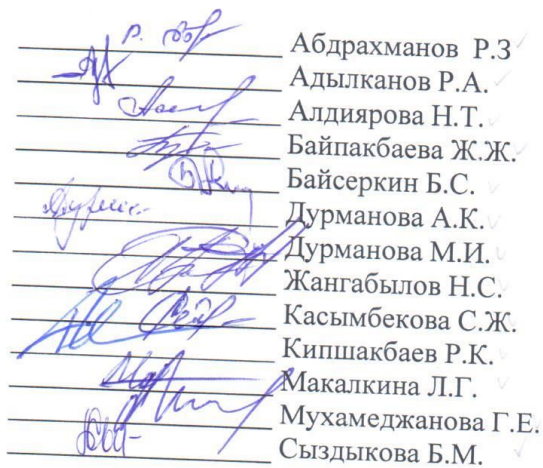 Абдрахманов Р.З
Адылканов Р.А.
Алдиярова Н.Т.
Байпакбаева Ж.Ж.
Байсеркин Б.С.
Дурманова А.К.
Дурманова М.И.
Жангабылов Н.С.
Касымбекова С.Ж.
Кипшакбаев Р.К.
Макалкина Л.Г.
Мухамеджанова Г.Е.
Сыздыкова Б.М.